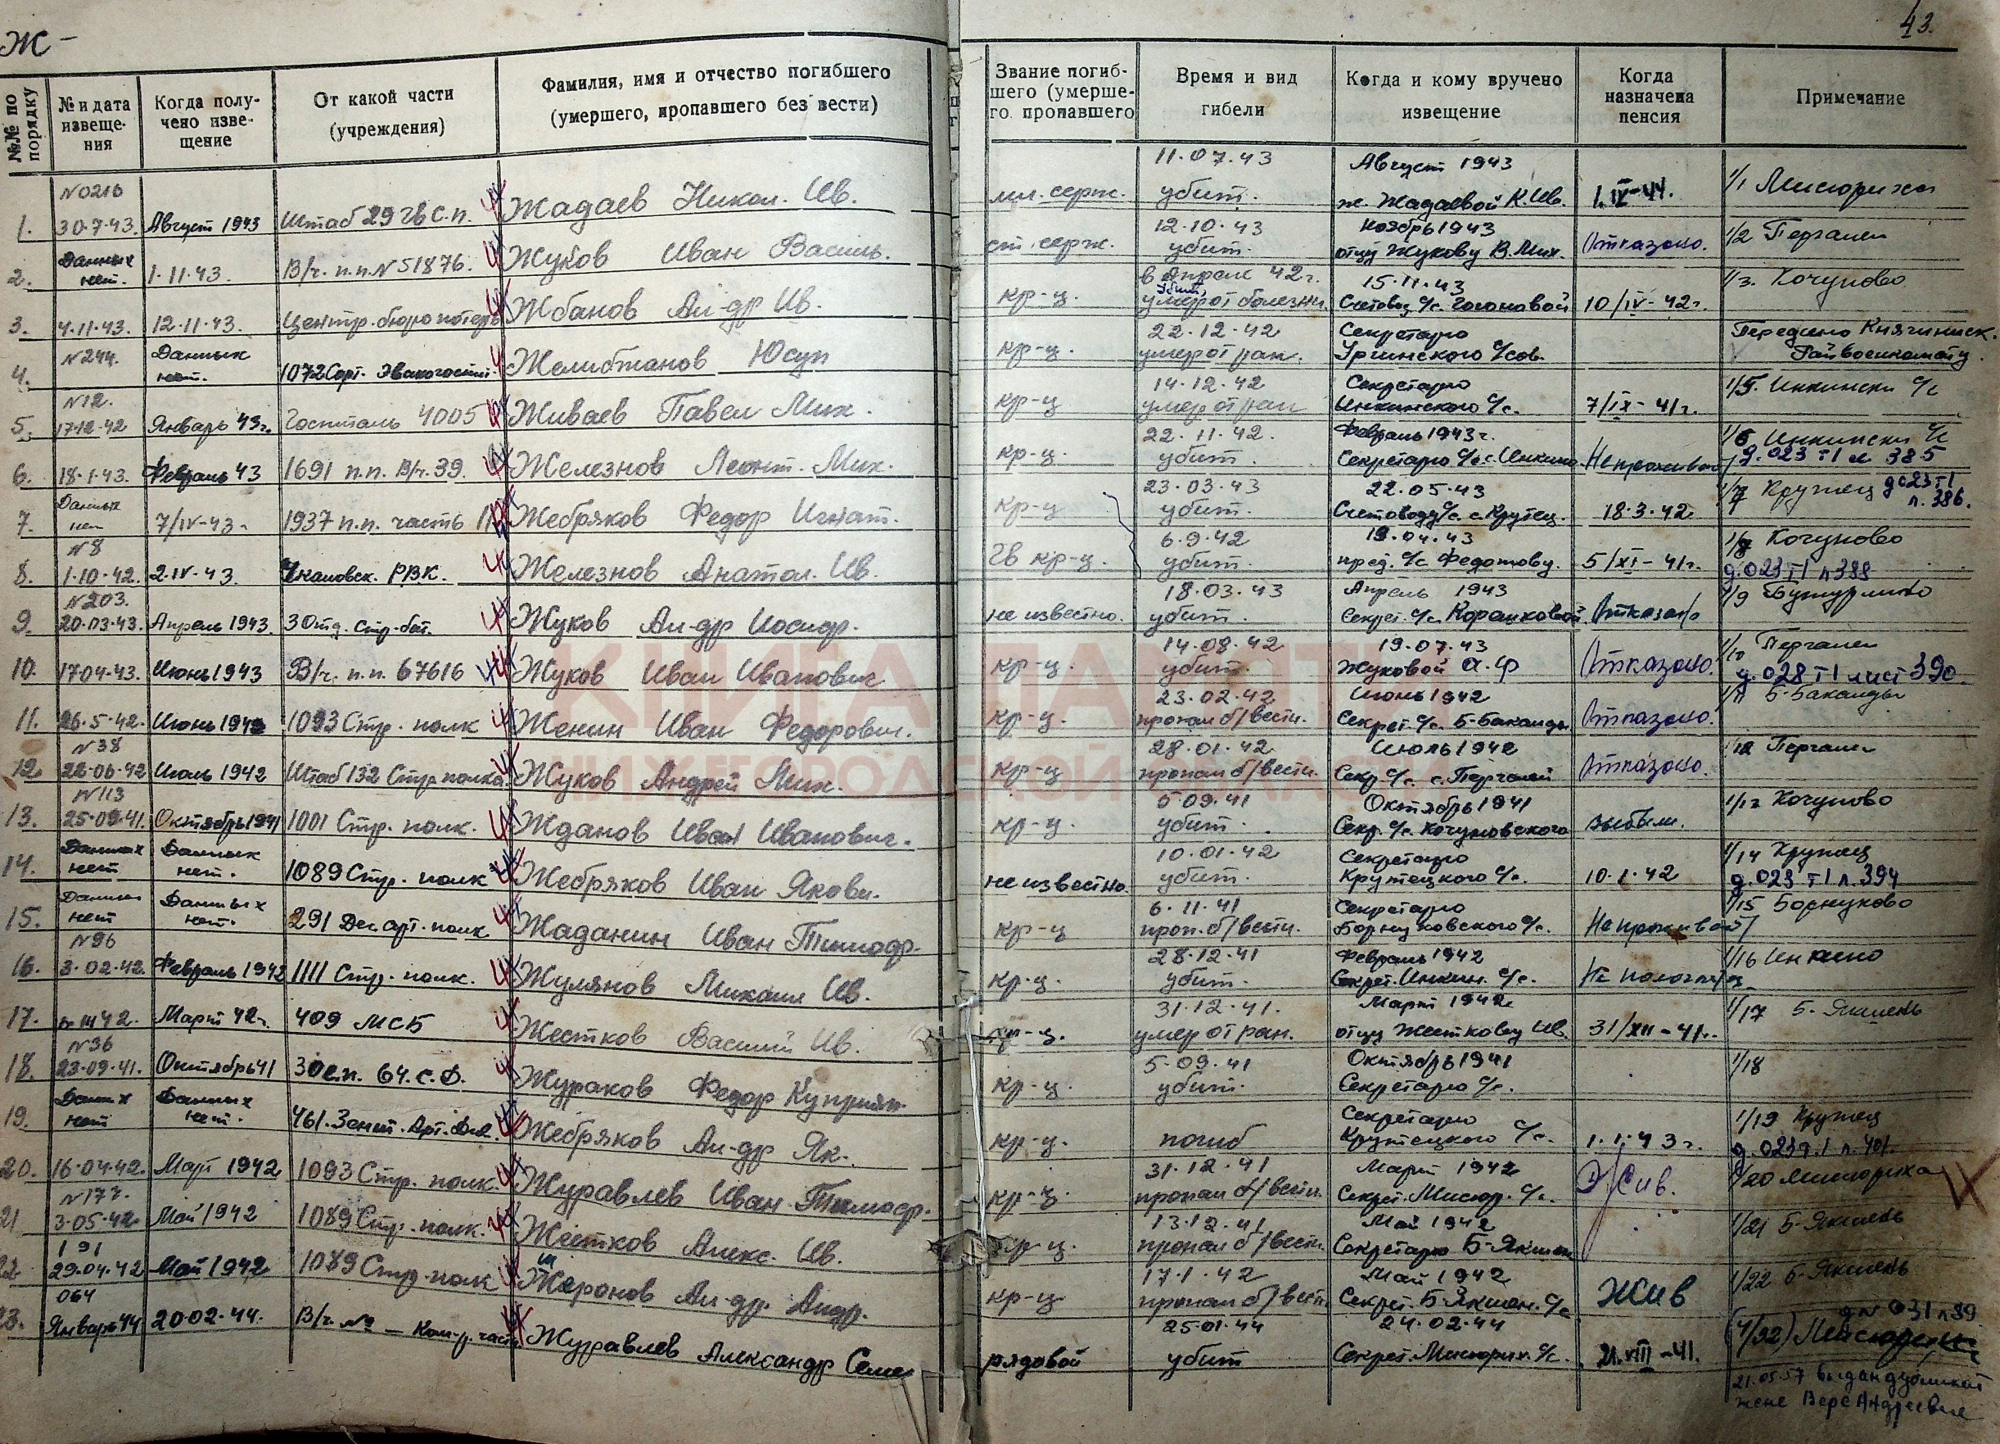 Ж –
43.
№№ по порядку
№ и дата извещения
Когда получено извещение
От какой части (учреждения)
Фамилия, имя и отчество погибшего (умершего, пропавшего без вести)
Звание погибшего (умершего, пропавшего
Время и вид гибели
Когда и кому вручено извещение
Когда назначена пенсия
Примечание
1. №0216 30.7.43. Август 1943 Штаб 29 гв С.п. Жадаев Никол. Ив. мл. серж. 11.07.43 убит. Август 1943 ж. Жадаевой К. Ив. 1.IV-44. 1/1 Мисюриха
2. Данных нет. 1.11.43. В/ч. п.п. №51876. Жуков Иван Василь. ст. серж. 12.10.43 убит. Ноябрь 1943 отцу Жукову В. Мих. Отказано. 1/2 Пергалеи
3. 4.11.43. 12.11.43. Центр. бюро потерь Жбанов Ал-др Ив. кр-ц. в Апреле 42г. умер от болезни. 15.11.43 Счетовод с/с. 10/IV-42г. 1/3. Кочуново
4. №244. Данных нет. 1072 Сорт. Эвакогоспит. Желибжанов Юсуп кр-ц. 22.12.42 умер от ран. Секретарю Ургинского с/сов. Передано Княгининск. Райвоенкомату.
5. №12. 17.12.42 Январь 43г. Госпиталь 4005 Живаев Павел Мих. кр-ц 14.12.42 умер от ран Секретарю Инкинского с/с. 7/IX-41г. 1/5. Инкински с/с
6. 18.1.43. Февраль 43 1691 п.п. В/ч. 39. Железнов Леонт. Мих. кр-ц. 22.11.42. убит. Февраль 1943г. Секретарю с/с с. Инкино. 1/6 Инкински с/с д.023 т1 л 385
7. Данных нет 7/IV-43. 1937 п.п. часть Жебряков Федор Игнат. кр-ц 23.03.43 убит. 22.05.43 Счетоводу с/с. с. Крутец. 18.3.42г 1/7 Крутец д 023 т1 л.386.
8. №8 1.10.42. 2.IV.43. Чкаловск. РВК. Железнов Анатол. Ив. Гв кр-ц. 6.9.42 убит. 19.04.43 пред. с/с Федотову. 5/XI-41г. 1/8 Кочуново д.023 т1 л388
9. №203. 20.03.43. Апрель 1943. 3 Отд. Стр. бат. Жуков Ал-др Иосифр. не известно. 18.03.43 убит. Апрель 1943 Секрет. с/с. Отказано 1/9 Бутурлино
10. 17.04.43. Июнь 1943 В/ч. п.п. 67616 Жуков Иван Иванович кр-ц. 14.08.42 убит. 19.07.43 Жуковой А.Ф Отказано. 1/10 Пергалеи д.028 т1 лист 390.
11. 26.5.42. Июнь 1942 1093 Стр. полк Женин Иван Федорович. кр-ц. 23.02.42 пропал б/вести. Июнь 1942 Секрет. с/с. Б-Бакалды Отказано. 1/11 Б-Бакалды
12. №38 22.06.42 Июль 1942 Штаб 132 Стр полка. Жуков Андрей Мих. кр-ц. 28.01.42 пропал б/вести. Июль 1942 Секр с/с. с. Пергалей Отказано. 1/12 Пергалеи
13. №113 25.09.41. Октябрь 1941 1001 Стр. полк. Жданов Иван Иванович. кр-ц. 5.09.41 убит. Октябрь 1941 Секр. с/с. Кочуновского выбыли. 1/13 Кочуново
14. Данных нет Данных нет. 1089 Стр. полк Жебряков Иван Якови. не известно. 10.01.42 убит. Секретарю Крутецкого с/с. 10.1.42 1/14 Крутец д.023 т1 л.394
15. Данных нет Данных нет. 291 Дес арт. полк Жаданин Иван Тимофр. кр-ц 6.11.41 проп. б/вести. Секретарю Борнуковского с/с. 1/15 Борнуково
16. №96 3.02.42. Февраль 1942 1111 Стр. полк. Жулянов Михаил Ив. кр-ц. 28.12.41 убит. Февраль 1942 Секрет. Инкин. с/с. 1/16 Инкино
17. Март 42г. 409 МСБ Жестков Василий Ив. кр-ц. 31.12.41. умер от ран. Март 1942 отцу Жесткову Ив. 31/XII-41г. 1/17 Б-Якшень
18. №36 23.09.41. Октябрь 41 30 с.п. 64. с.д. Жураков Федор Куприян. кр-ц. 5.09.41 убит. Октябрь 1941 Секретарю с/с. 1/18
19. Данных нет Данных нет. 461. Зенит. Арт. Див. Жебряков Ал-др Як. кр-ц. погиб Секретарю Крутецкого с/с. 1.1.43г. 1/19 Крутец д.023 т.1 л.401.
20. 16.04.42. Март 1942 1093 Стр. полк. Журавлев Иван Тимофр. кр-ц. 31.12.41 пропал б/вести. Март 1942 Секрет. Мисюр. с/с. Жив. 1/20 Мисюриха
21 №177. 3.05.42. Май 1942 1089 Стр. полк. Жестков Алекс. Ив. кр-ц. 13.12.41 пропал б/вести. Май 1942 Секретарю Б-Якшен 1/21 Б-Якшень
22 191 29.04.42 Май 1942 1089 Стр. полк Жаронов Ал-др. Андр. кр-ц 17.1.42 пропал б/вести Май 1942 Секрет. Б-Якшен. с/с Жив 1/22 Б-Якшень д № 031 л 39.
23. 064 Январь 44 20.02.44. В/ч. № – Журавлев Александр Семе рядовой 25.01.44 убит 24.02.44 Секрет. Мисюрих. с/с. 21.VIII-41. Мисюриха
21.05.57 выдан дубликат
жене Вере Андреевне
КНИГА ПАМЯТИ
НИЖЕГОРОДСКОЙ ОБЛАСТИ